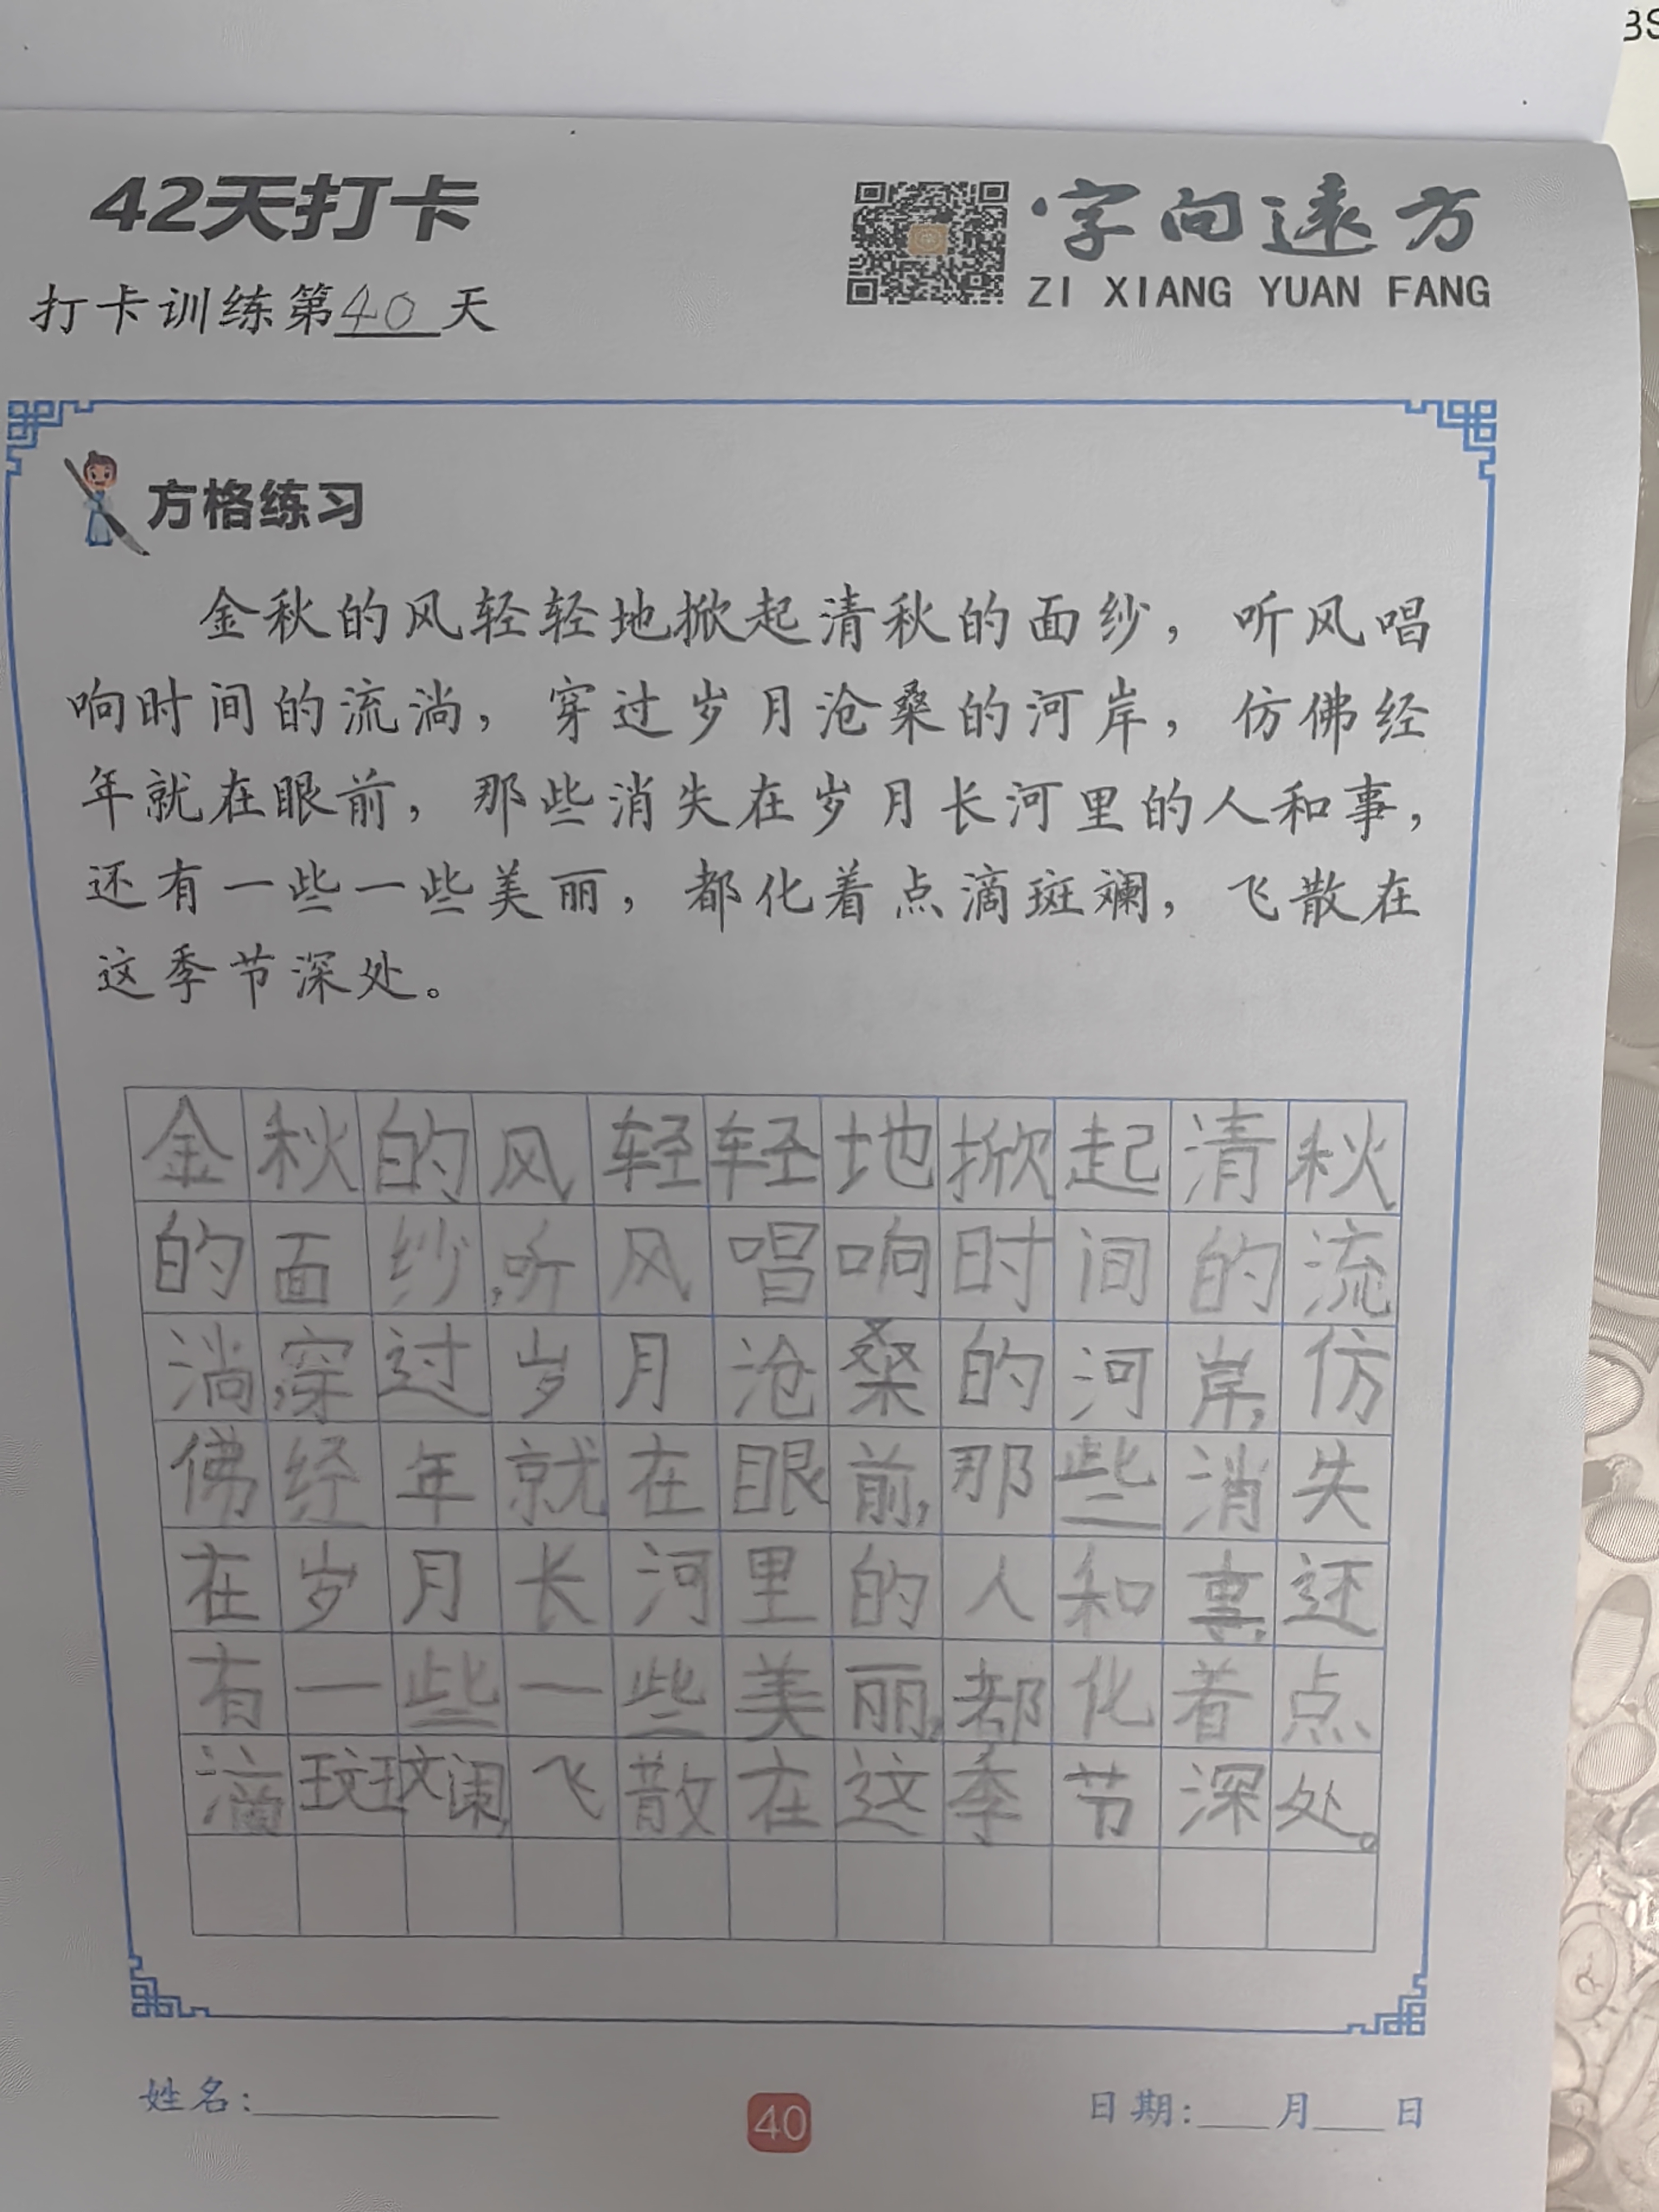 BS
42天打卡
字向遠方
ZI XIANG YUAN FANG
打卡训练第40天
方格练习
金秋的风轻轻地掀起清秋的面纱，听风唱
响时间的流淌，穿过岁月沧桑的河岸，仿佛经
年就在眼前，那些消失在岁月长河里的人和事，
还有一些一些美丽，都化着点滴斑斓，飞散在
这季节深处。
金秋的风轻轻地掀起清秋
的面纱，听风唱响时间的流
淌，穿过岁月沧桑的河岸，仿
佛经年就在眼前，那些消失
在岁月长河里的人和事，还
有一些一些美丽，都化着点
滴斑斓，飞散在这季节深处。
姓名：
40
日期： 月 日